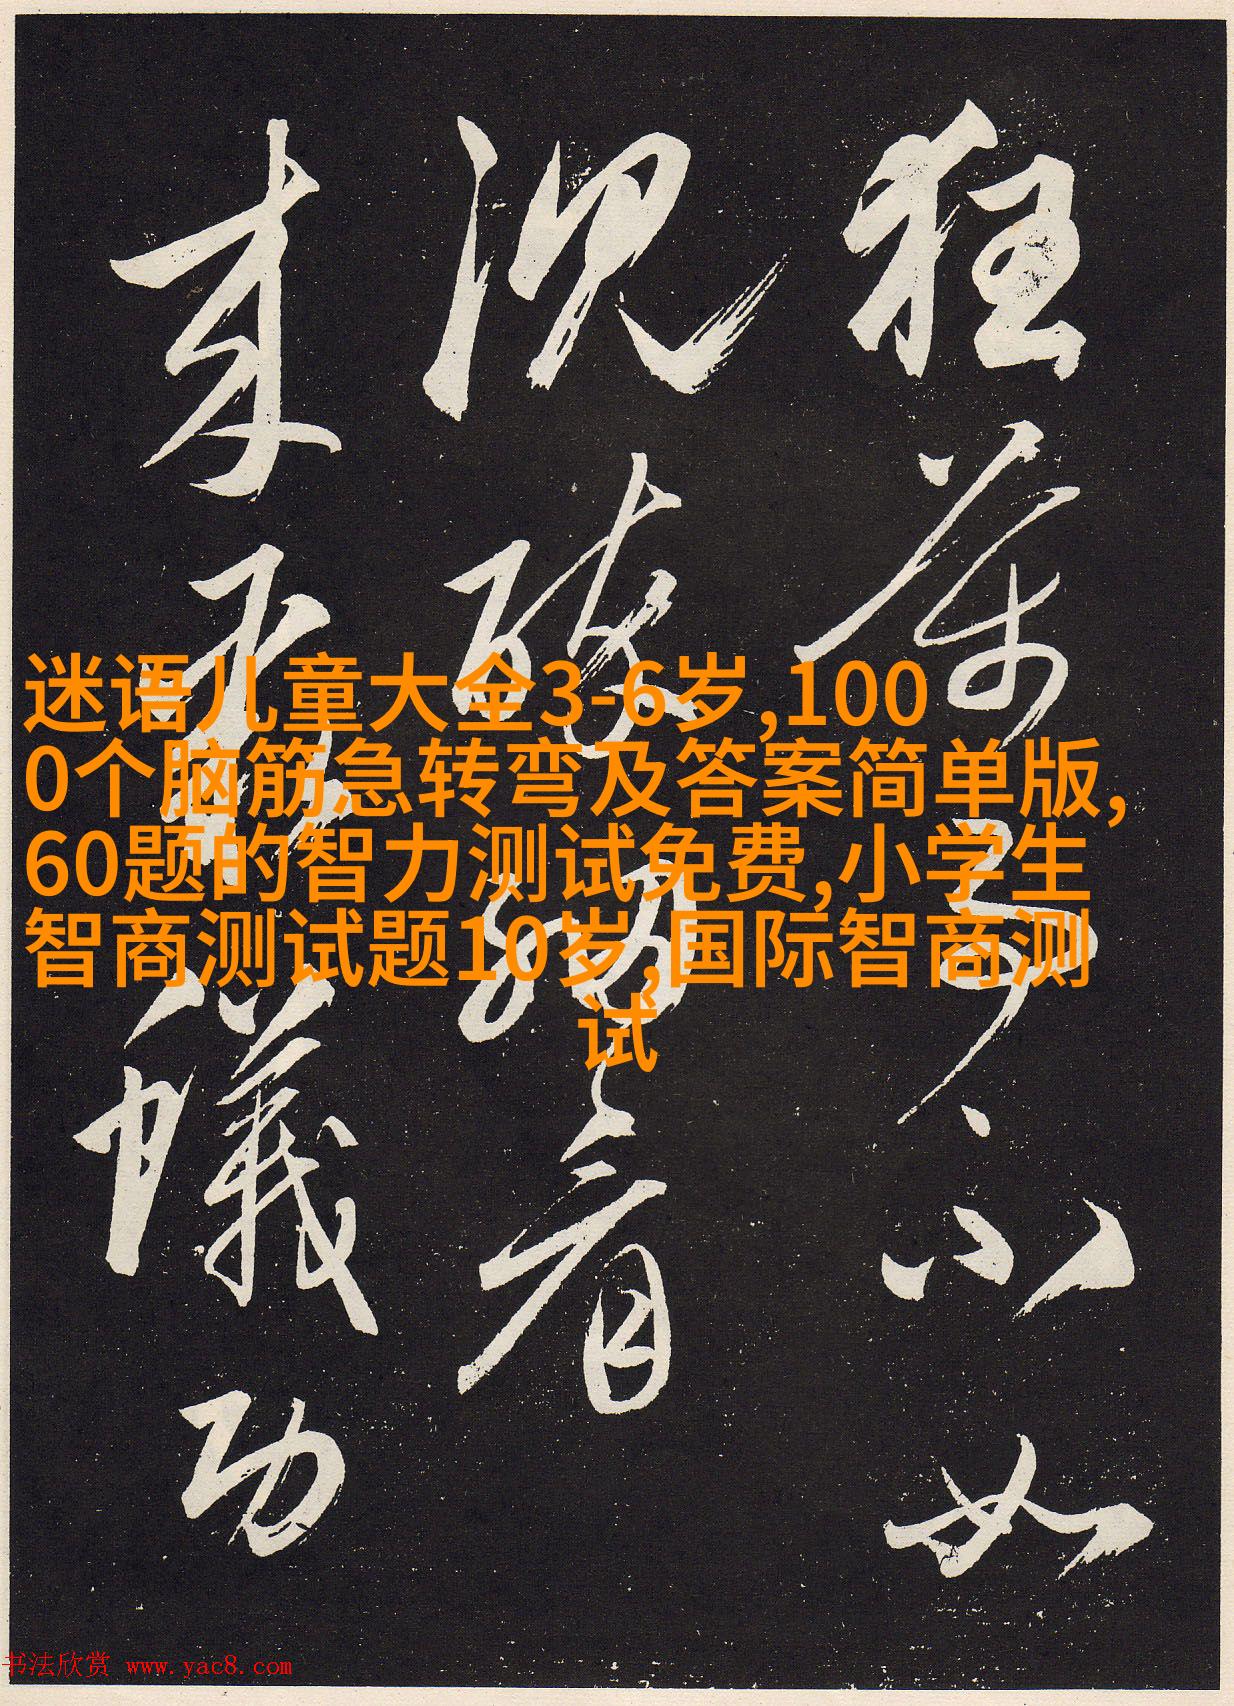 狂不如
沉
来功
迷语儿童大全3-6岁,100
0个脑筋急转弯及答案简单版,
60题的智力测试免费,小学生
智商测试题10岁,国际智商测
试
书法欣赏 www.yac8.com